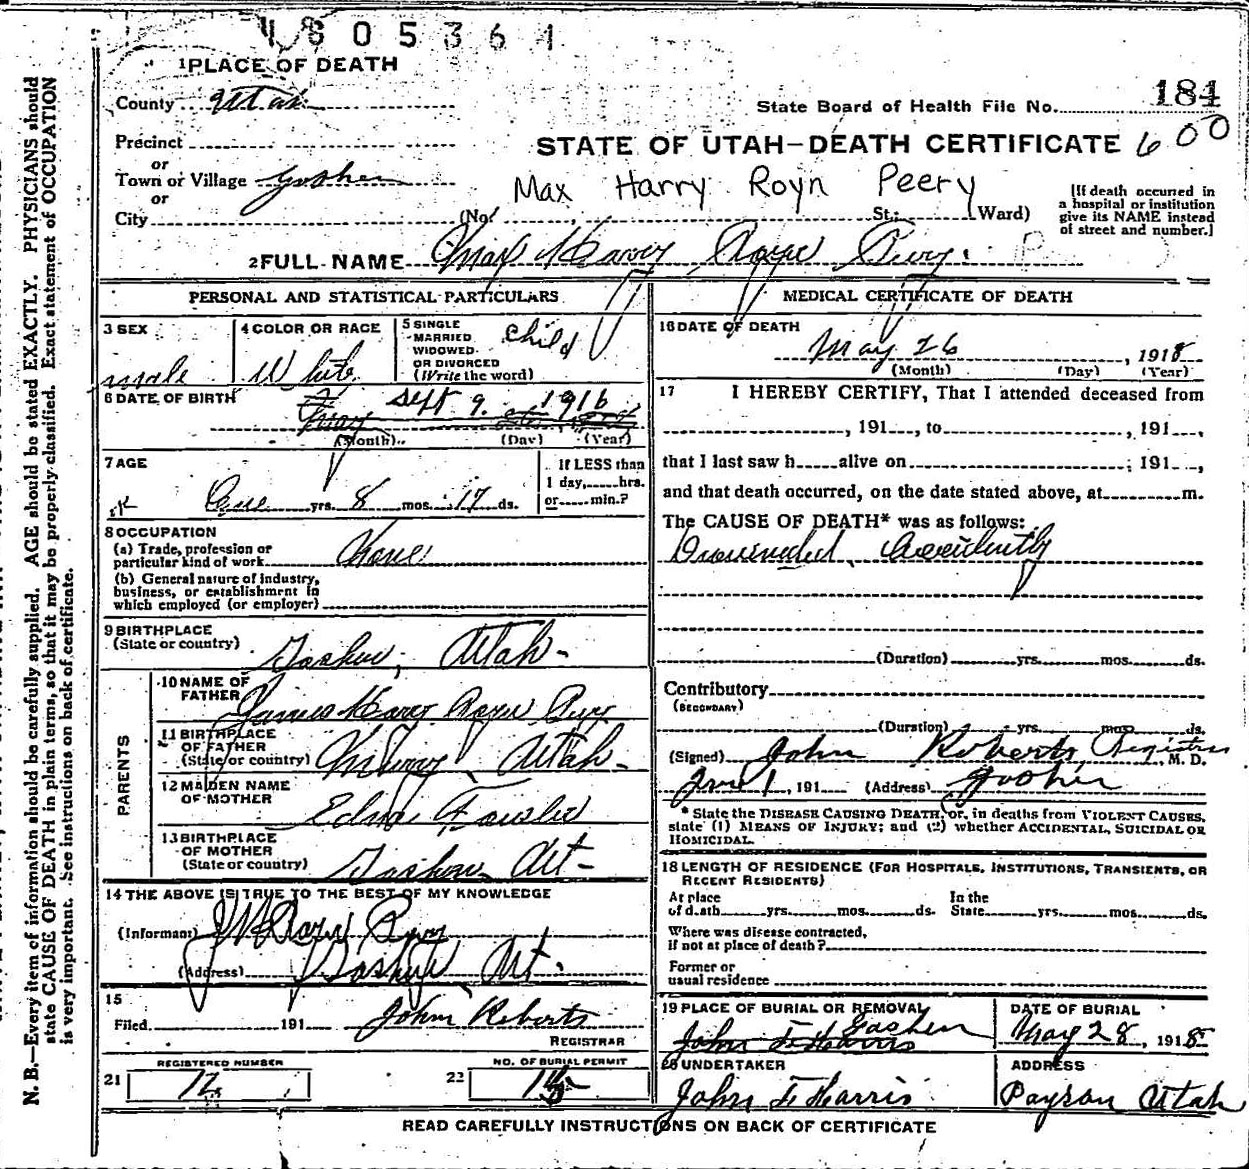 1805361
1 PLACE OF DEATH
County Utah
State Board of Health File No. 184
Precinct
STATE OF UTAH—DEATH CERTIFICATE 600
or
Town or Village Goshen
or
Max Harry Royn Peery
City (No. , St.; Ward)
[If death occurred in
a hospital or institution
give its NAME instead
of street and number.]
2 FULL NAME Max Harry Royn Peery.
PERSONAL AND STATISTICAL PARTICULARS
3 SEX
male
4 COLOR OR RACE
White
5 SINGLE
MARRIED
WIDOWED
OR DIVORCED
(Write the word)
child
6 DATE OF BIRTH
Sept 9. 1916
(Month) (Day) (Year)
7 AGE
One yrs. 8 mos. 17 ds.
If LESS than
1 day, hrs.
or min.?
8 OCCUPATION
(a) Trade, profession or
particular kind of work None
(b) General nature of industry,
business, or establishment in
which employed (or employer)
9 BIRTHPLACE
(State or country) Goshen, Utah-
PARENTS
10 NAME OF
FATHER James Harry Royn Peery
11 BIRTHPLACE
OF FATHER
(State or country) Utah-
12 MAIDEN NAME
OF MOTHER Edna
13 BIRTHPLACE
OF MOTHER
(State or country) Goshen Ut-
14 THE ABOVE IS TRUE TO THE BEST OF MY KNOWLEDGE
(Informant) Peery
(Address) Goshen Ut.
15
Filed 191 John Roberts
REGISTRAR
REGISTERED NUMBER
21 12
NO. OF BURIAL PERMIT
22
MEDICAL CERTIFICATE OF DEATH
16 DATE OF DEATH
May 26, 1918
(Month) (Day) (Year)
17 I HEREBY CERTIFY, That I attended deceased from
, 191 , to , 191 ,
that I last saw h alive on ; 191 ,
and that death occurred, on the date stated above, at m.
The CAUSE OF DEATH* was as follows:
Drowneded Accidently
(Duration) yrs. mos. ds.
Contributory
(SECONDARY)
(Duration) yrs. mos. ds.
(Signed) John Roberts Registrar, M. D.
June 1, 191 (Address) Goshen
* State the DISEASE CAUSING DEATH, or, in deaths from VIOLENT CAUSES,
state (1) MEANS OF INJURY; and (2) whether ACCIDENTAL, SUICIDAL OR
HOMICIDAL.
18 LENGTH OF RESIDENCE (FOR HOSPITALS, INSTITUTIONS, TRANSIENTS, OR
RECENT RESIDENTS)
At place
of death yrs. mos. ds.
In the
State yrs. mos. ds.
Where was disease contracted,
if not at place of death?
Former or
usual residence
19 PLACE OF BURIAL OR REMOVAL
Goshen
John F Harris
DATE OF BURIAL
May 28, 1918
20 UNDERTAKER
John F Harris
ADDRESS
Payson Utah
READ CAREFULLY INSTRUCTIONS ON BACK OF CERTIFICATE
N. B.—Every item of information should be carefully supplied. AGE should be stated EXACTLY. PHYSICIANS should
state CAUSE OF DEATH in plain terms, so that it may be properly classified. Exact statement of OCCUPATION
is very important. See instructions on back of certificate.